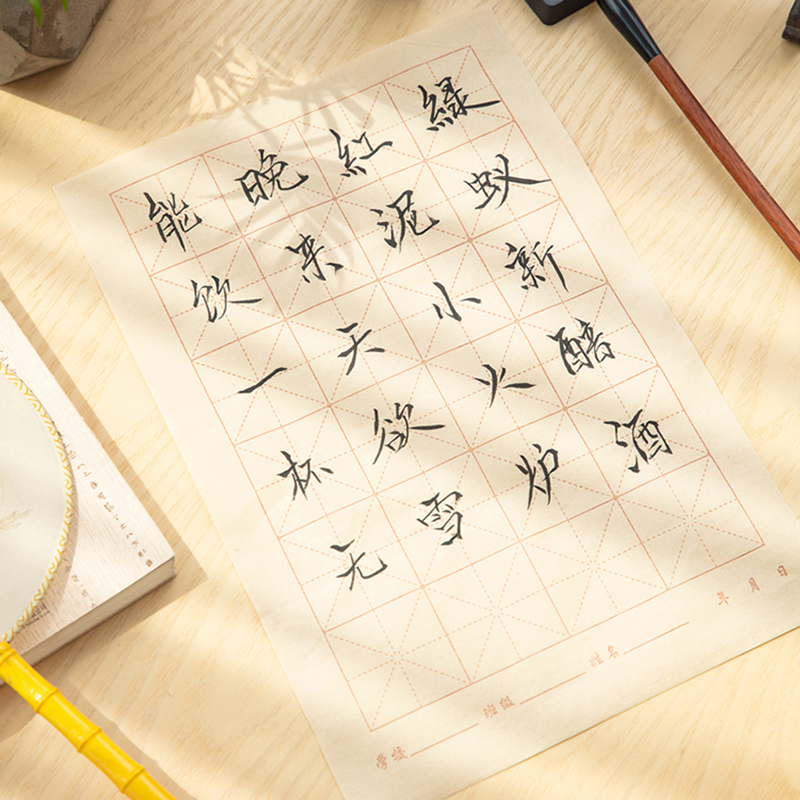 緑蚁新醅酒
紅泥小火炉
晚来天欲雪
能饮一杯无
学校 班级 姓名 年 月 日